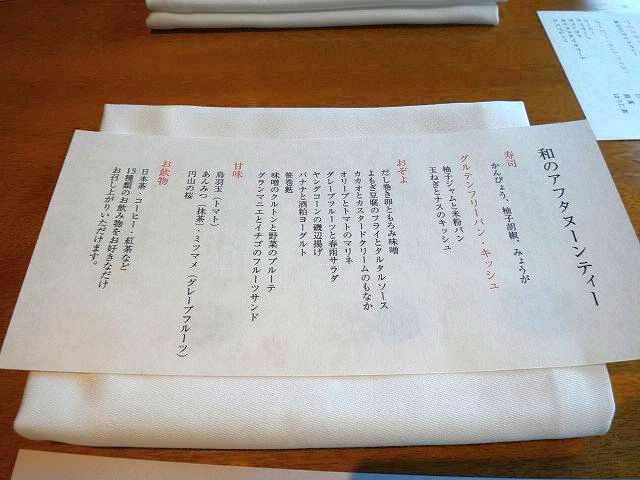 和のアフタヌーンティー
寿司
かんぴょう、柚子胡椒、みょうが
グルテンフリーパン・キッシュ
柚子ジャムと米粉パン
玉ねぎとナスのキッシュ
おぞよ
だし巻き卵ともろみ味噌
よもぎ豆腐のフライとタルタルソース
カカオとカスタードクリームのもなか
オリーブとトマトのマリネ
グレープフルーツと春雨サラダ
ヤングコーンの磯辺揚げ
バナナと酒粕ヨーグルト
笹巻麩
味噌のクルトンと野菜のブルーテ
グランマニエとイチゴのフルーツサンド
甘味
烏羽玉（トマト）
あんみつ（抹茶）・ミツマメ（グレープフルーツ）
円山の桜
お飲物
日本茶 コーヒー・紅茶など
15種類のお飲み物をお好きなだけ
お召し上がりいただけます。